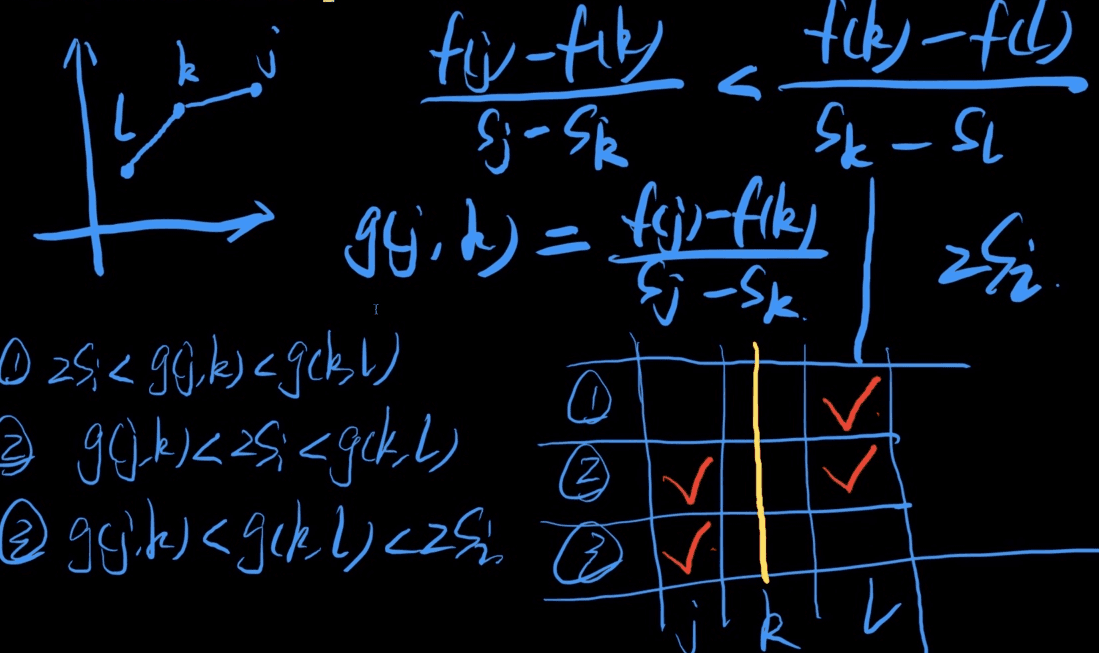 l k j
f(j) - f(k) / Sj - Sk < f(k) - f(l) / Sk - Sl
g(j, k) = f(j) - f(k) / Sj - Sk. 2Si.
① 2Si < g(j,k) < g(k,l)
② g(j,k) < 2Si < g(k,l)
③ g(j,k) < g(k,l) < 2Si
① ✓
② ✓ ✓
③ ✓
j k l